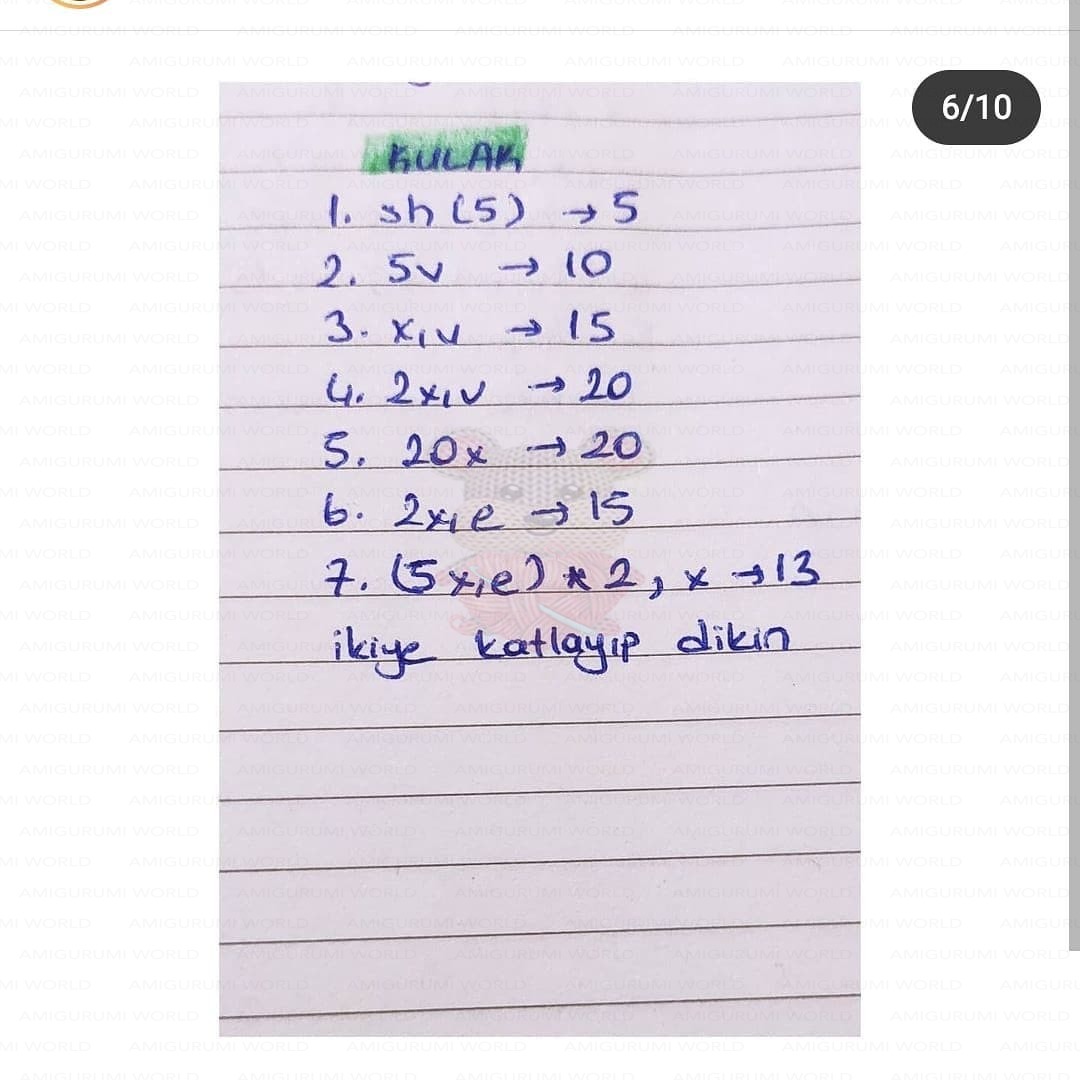 6/10
KULAK
1. sh (5) → 5
2. 5v → 10
3. x,v → 15
4. 2x,v → 20
5. 20x → 20
6. 2x,e → 15
7. (5x,e) * 2, x → 13
ikiye katlayıp dikin
AMIGURUMI WORLD